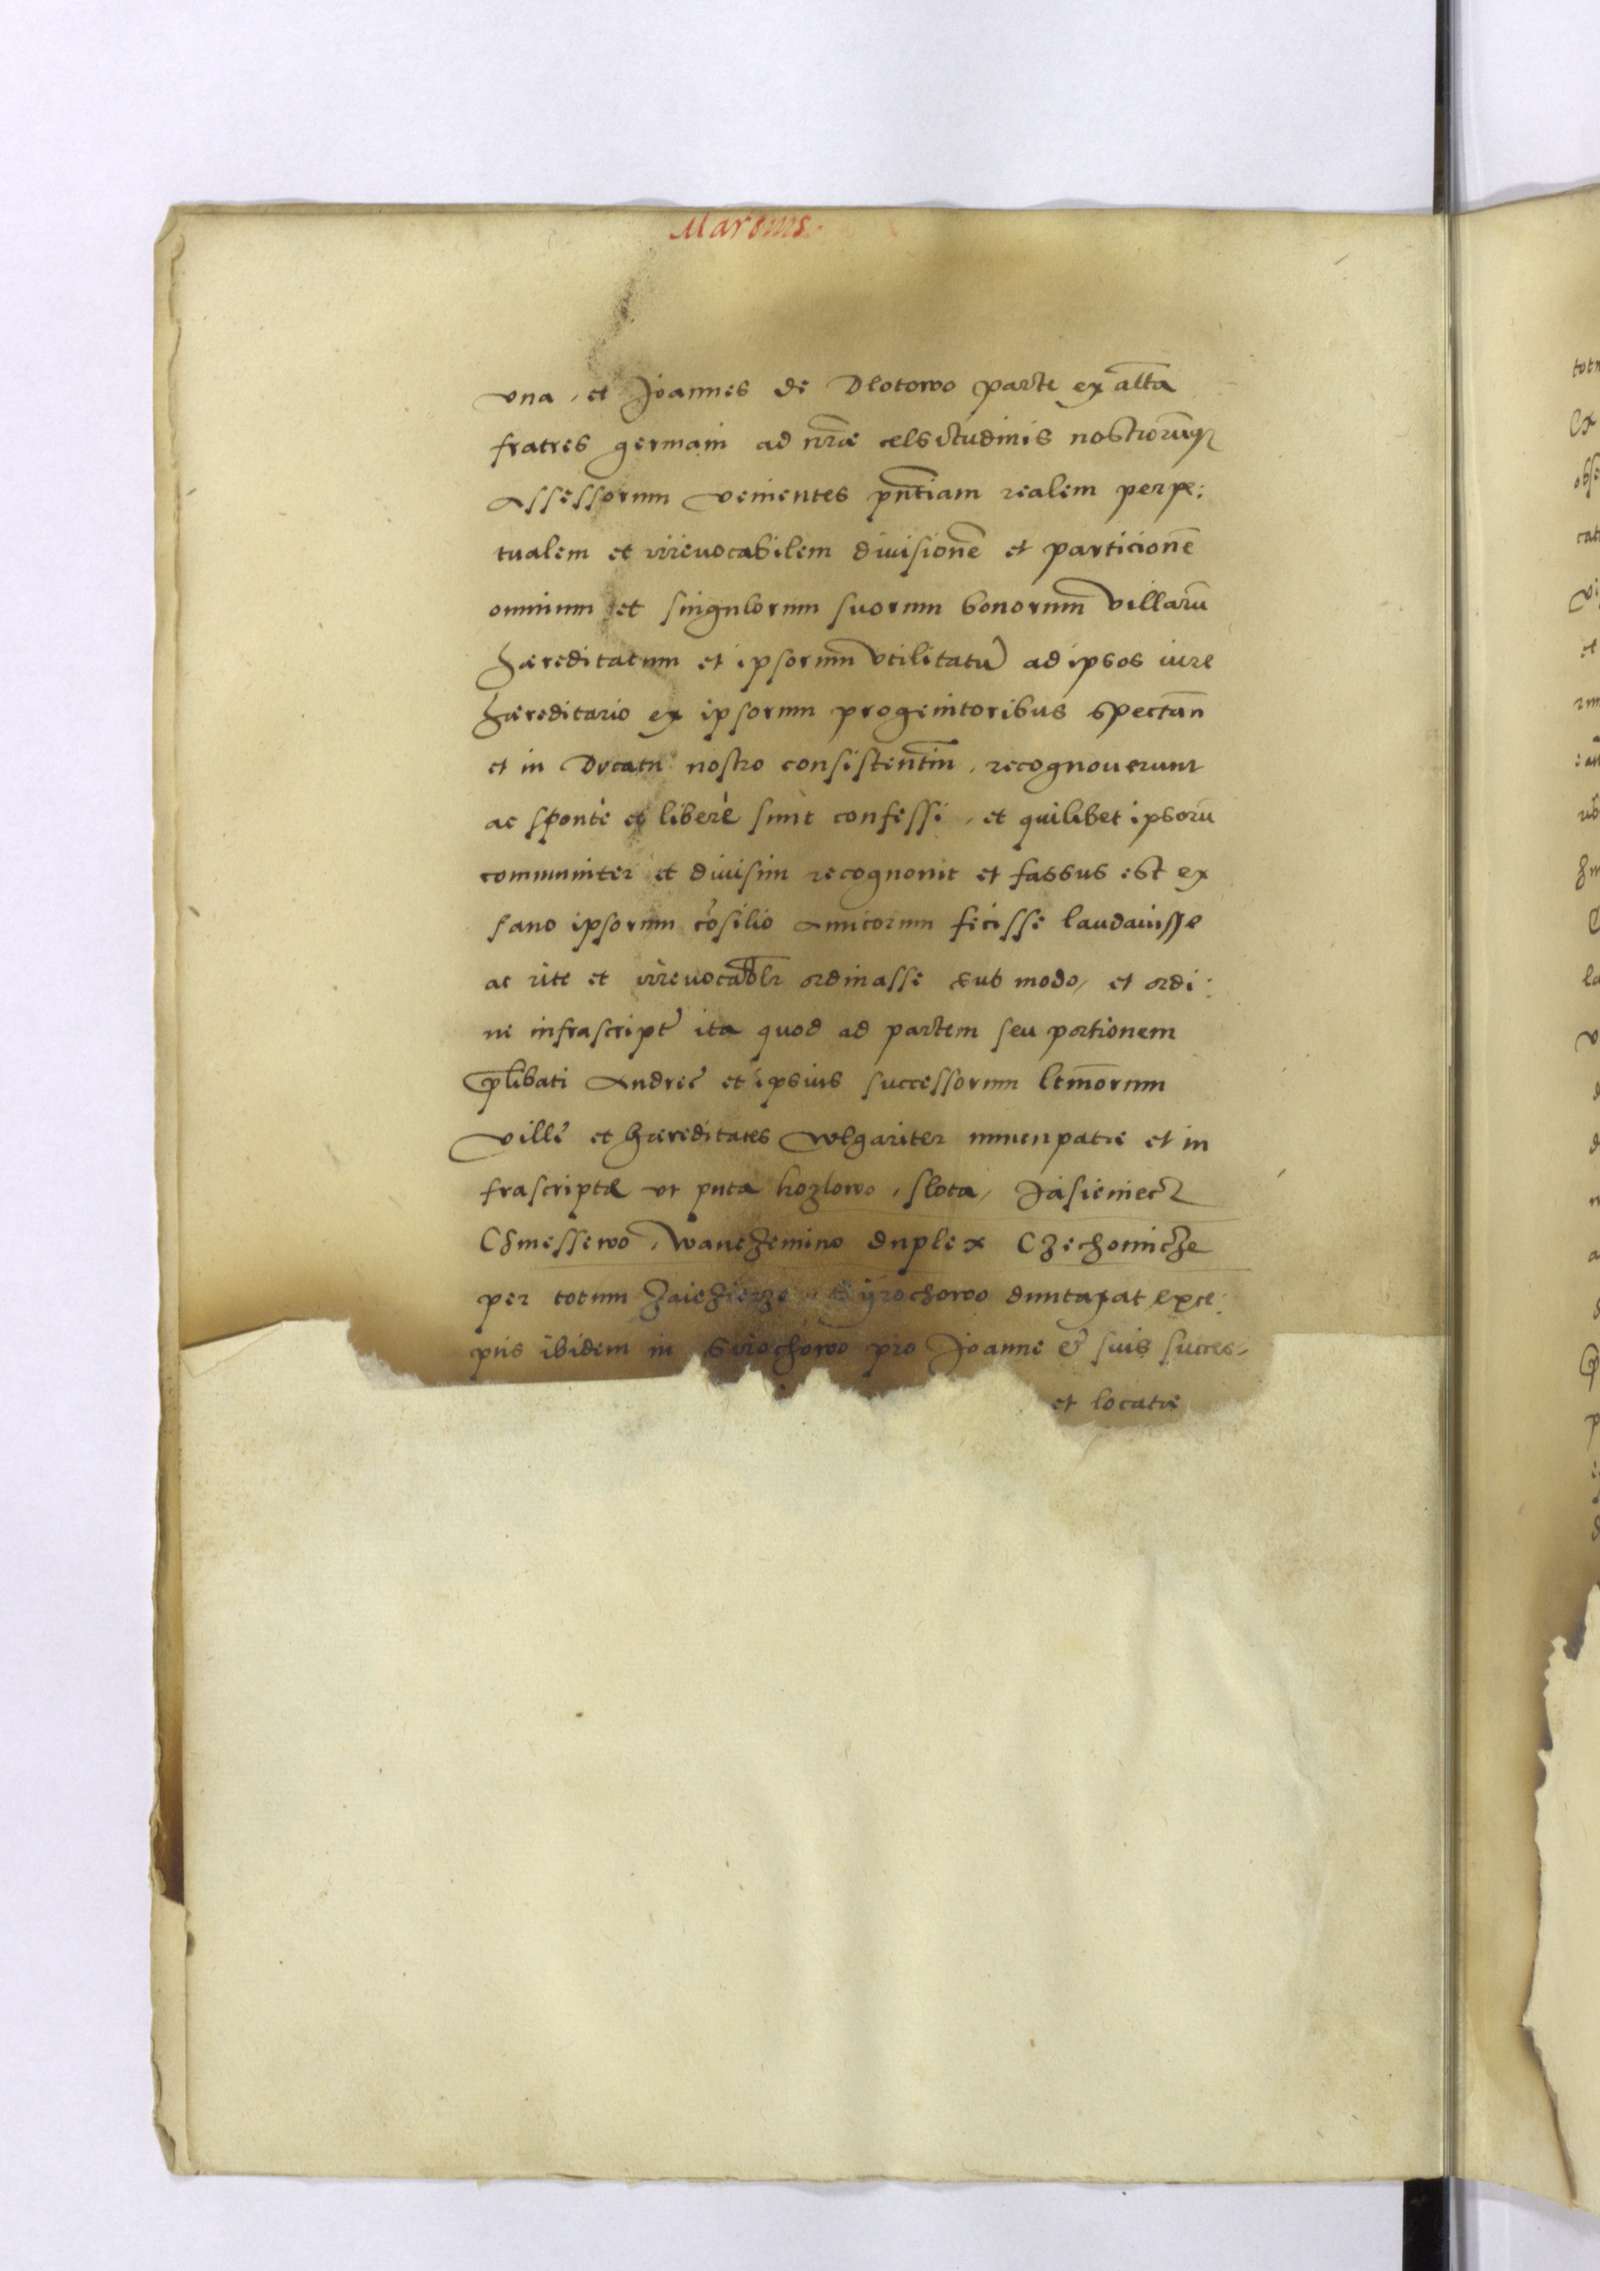 una, et Joannes de Dlotowo parte ex alta
fratres germani ad nrae celsitudinis nostrorumq
Assessorum venientes pntiam realem perpe:
tualem et irrevocabilem divisione et particione
omnium et singulorum suorum bonorum villaru
haereditatum et ipsorum utilitatu ad ipsos iure
haereditario ex ipsorum progenitoribus spectan
et in Ducatu nostro consistentim, recognoverunt
ac sponte et libere sunt confessi, et quilibet ipsoru
communiter et divisim recognovit et fassus est ex
sano ipsorum cosilio Amicorum fecisse laudavisse
ac rite et irrevocablr ordinasse sub modo, et ordi:
ne infrascripte ita quod ad partem seu portionem
plibati Andree et ipsius successorum ltmorum
ville et haereditates wlgariter nuncupatae et in
frascriptae ut puta Kozlowo, Slota, Jasieniecz
Chmessewo, Wanczemino duplex Czechomicze
per totum Zaiezierze Syrochowo duntaxat exce:
ptis ibidem in Sirochowo pro Joanne et suis succes-
et locatae